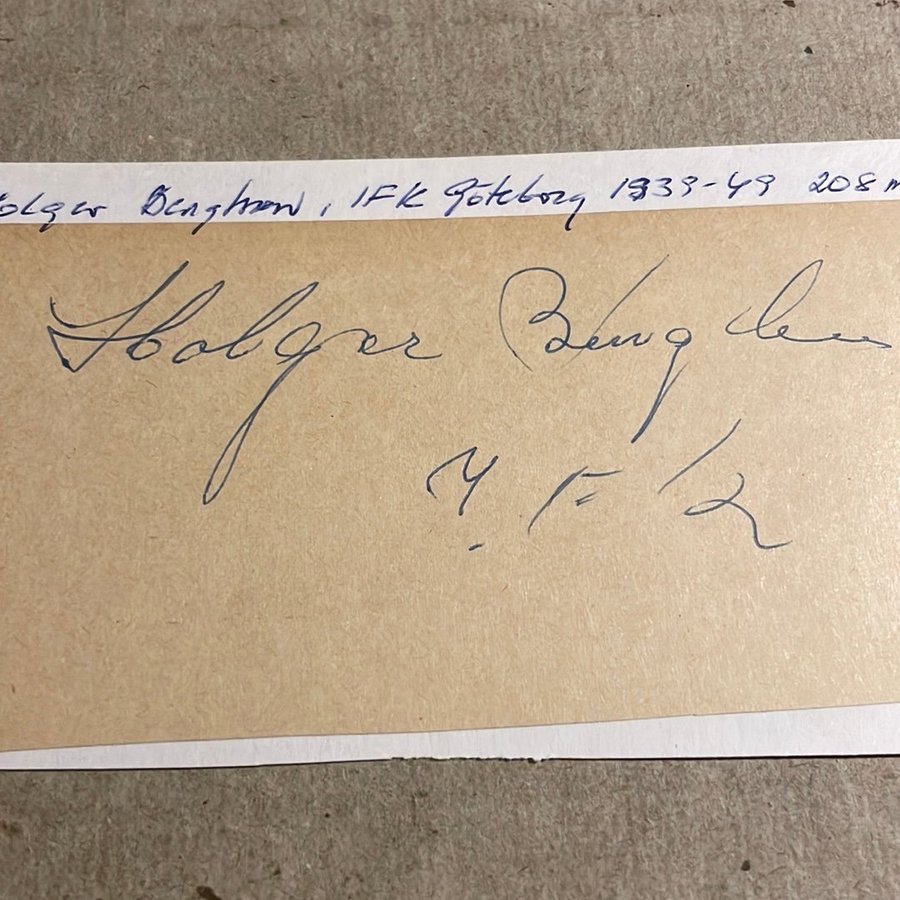 olger Bengtsson, IFK Göteborg 1939-49 208 m
Holger Bengtsson
I. F K